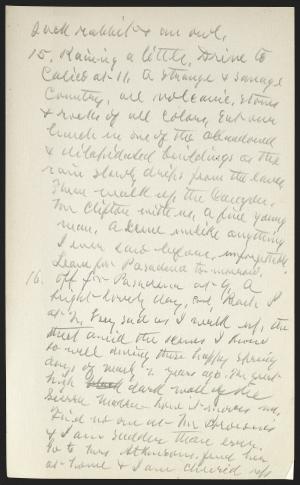 Jack rabbit & an owl.
15. Raining a little. Drive to
Calico at 11. A strange & savage
country, all volcanic, stones
& rocks of all colors. Eat our
lunch in one of the abandoned
& dilapidated buildings as the
rain slowly drips from the eaves.
Then walk up the Canyon.
Mr Clifton with us, a fine young
man. A scene unlike anything
I ever saw before, unforgettable.
Leave for Pasadena tomorrow.
16. Off for Pasadena at 9. A
bright lovely day, Reach P.
at 2. Very sad as I walk up the
street amid the scenes I knew
so well during those happy spring
days of 2 years ago. The great
high dark wall of the
Sierra Madre
Find no one at
& I am sadder than ever.
Go to Mrs Atkinsons, find her
at home & I am cheered up